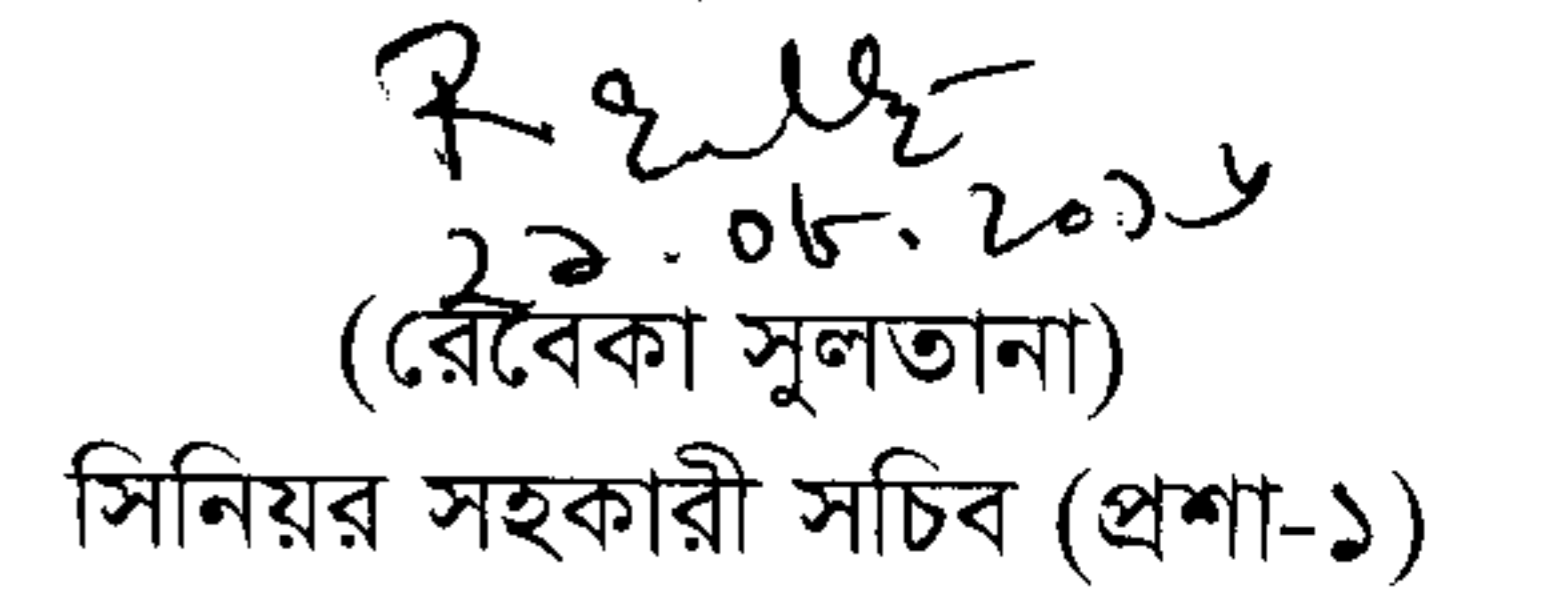 ২১.০৮.২০১৬
(রেবেকা সুলতানা)
সিনিয়র সহকারী সচিব (প্রশা-১)